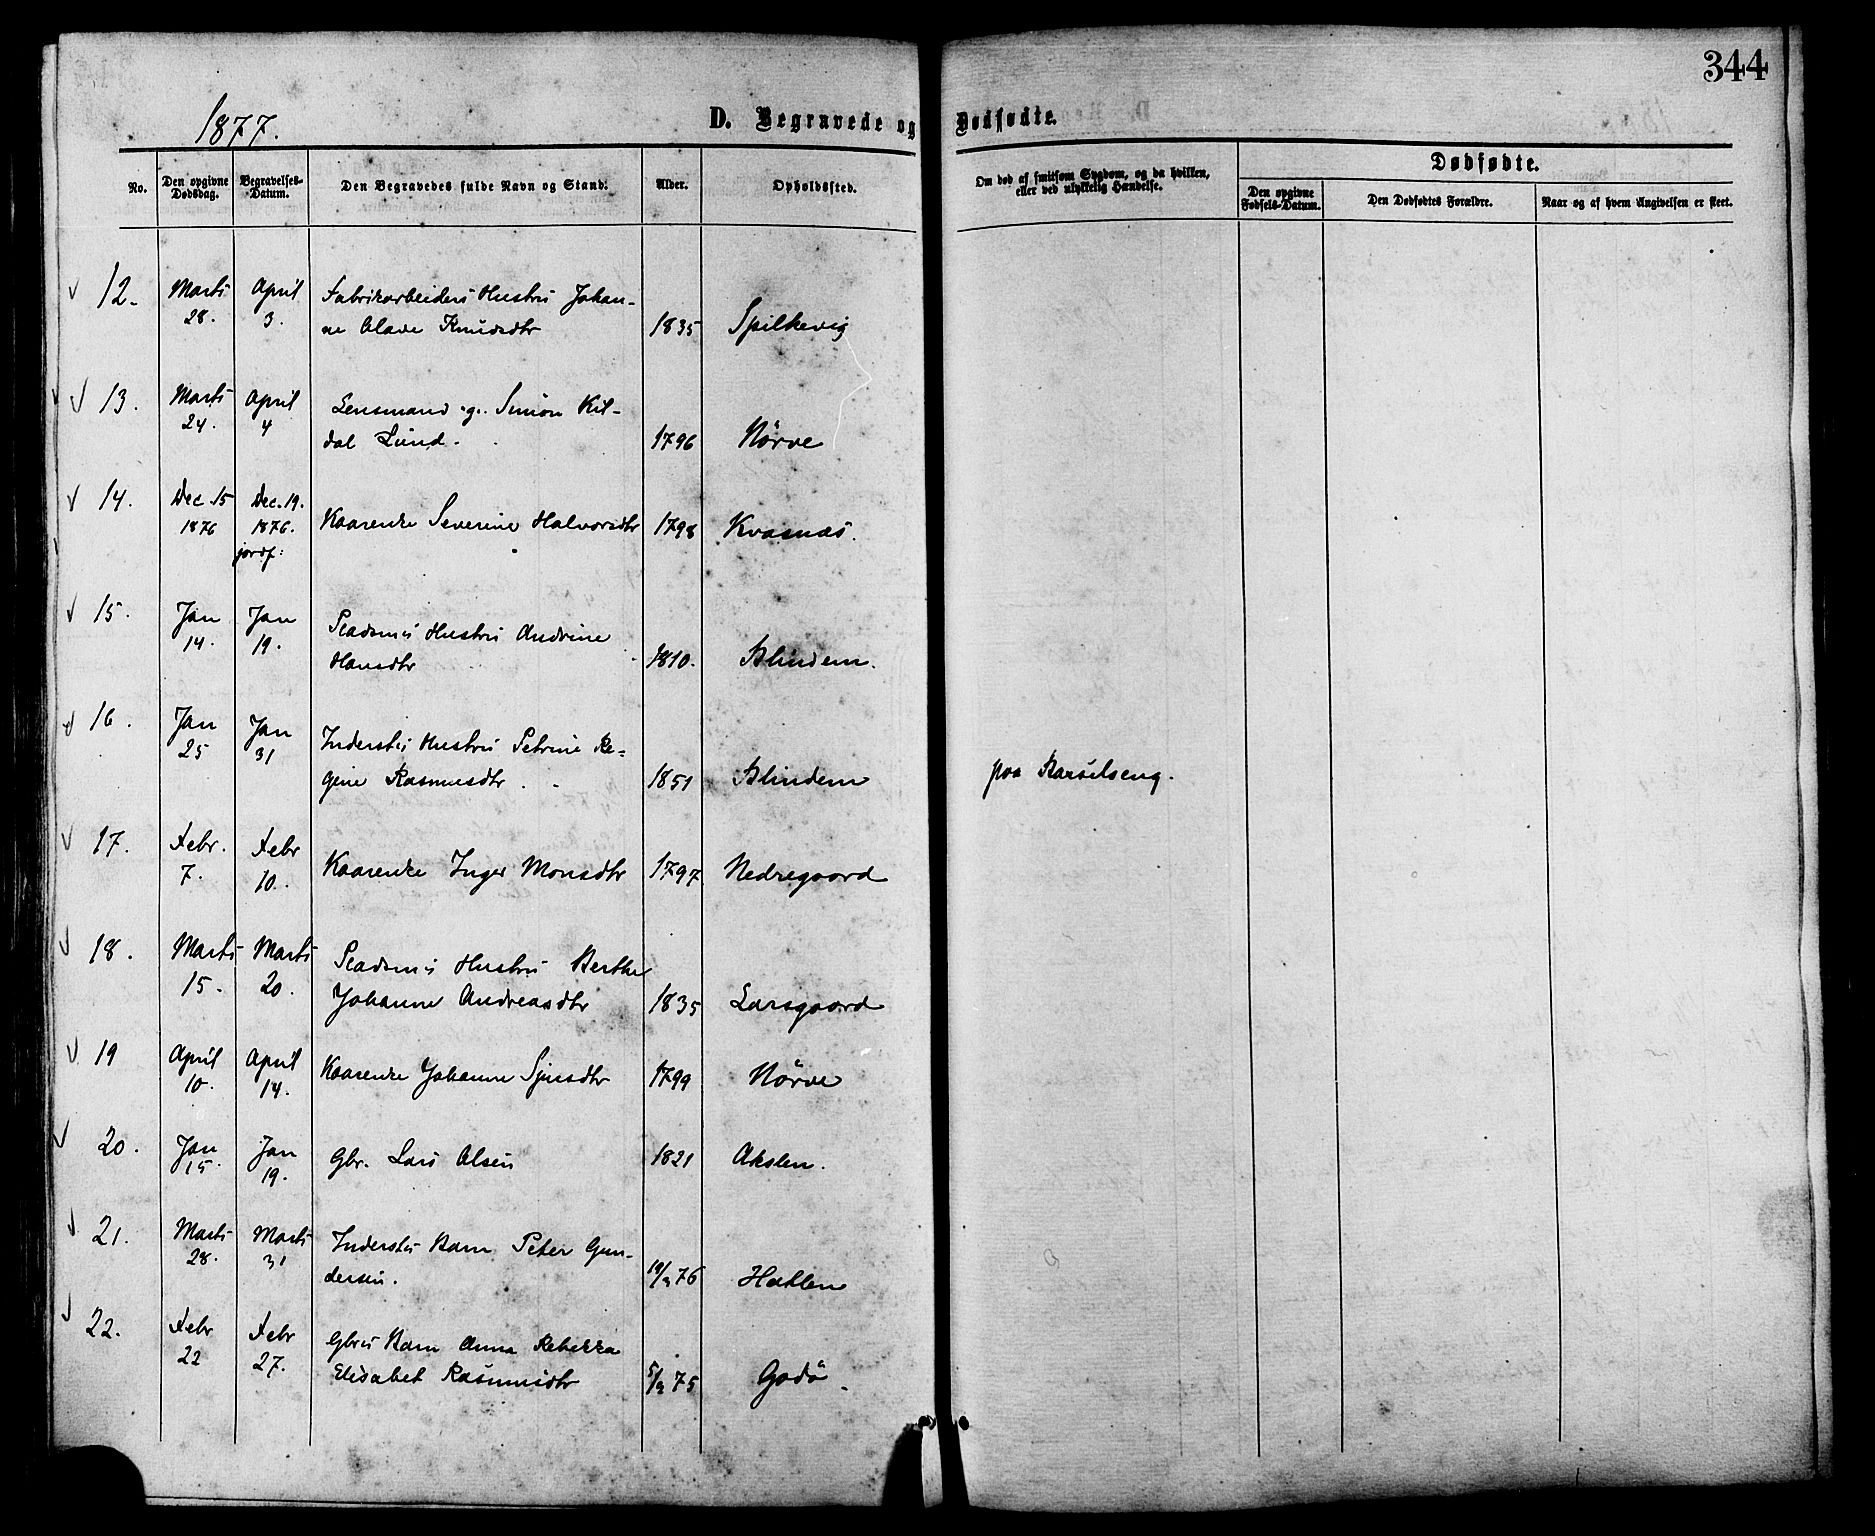 344
1877.
D. Begravede og Dødfødte.
No.
Den opgivne Dødsdag.
Begravelses-Datum.
Den Begravedes fulde Navn og Stand.
Alder.
Opholdssted.
Om død af smitsom Sygdom, og da hvilken, eller ved ulykkelig Hændelse.
Dødfødte.
Den opgivne Fødsels-Datum.
Den Dødfødtes Forældre.
Naar og af hvem Angivelsen er skeet.
12. Marts 28. April 3. Fabrikarbeiders Hustru Johan-
ne Olave Knudsdtr 1835 Spilkevig
13. Marts 24. April 4 Lensmand Simon Kil-
dal Lund. 1796 Nörve
14. Dec. 15 1876 Dec. 19. 1876. jordf: Kaarenke Severine Halvorsdtr 1798 Kvasnæs.
15. Jan 14. Jan 19. Pladsms Hustru Andrine
Hansdtr 1810. Blindem.
16. Jan 25 Jan 31 Inderstes Hustru Petrine Re-
gine Rasmusdtr 1851 Blindem paa Barselseng.
17. Febr. 7. Febr 10. Kaarenke Inger Monsdtr 1797 Nedregaard
18. Marts 15. Marts 20. Pladsms Hustru Berthe
Johanne Andreasdtr 1835 Larsgaard
19 April 10. April 14. Kaarenke Johanne Sjursdtr 1799 Nörve
20. Jan 15. Jan 19. Gbr. Lars Olsen 1821 Akslen.
21. Marts 28. Marts 31 Inderstes Barn Peter Gun-
dersen. 76 Hatlen
22. Febr 22 Febr 27. Gbrs Barn Anna Rebekka
Elisabet Rasmusdtr 75 Godö